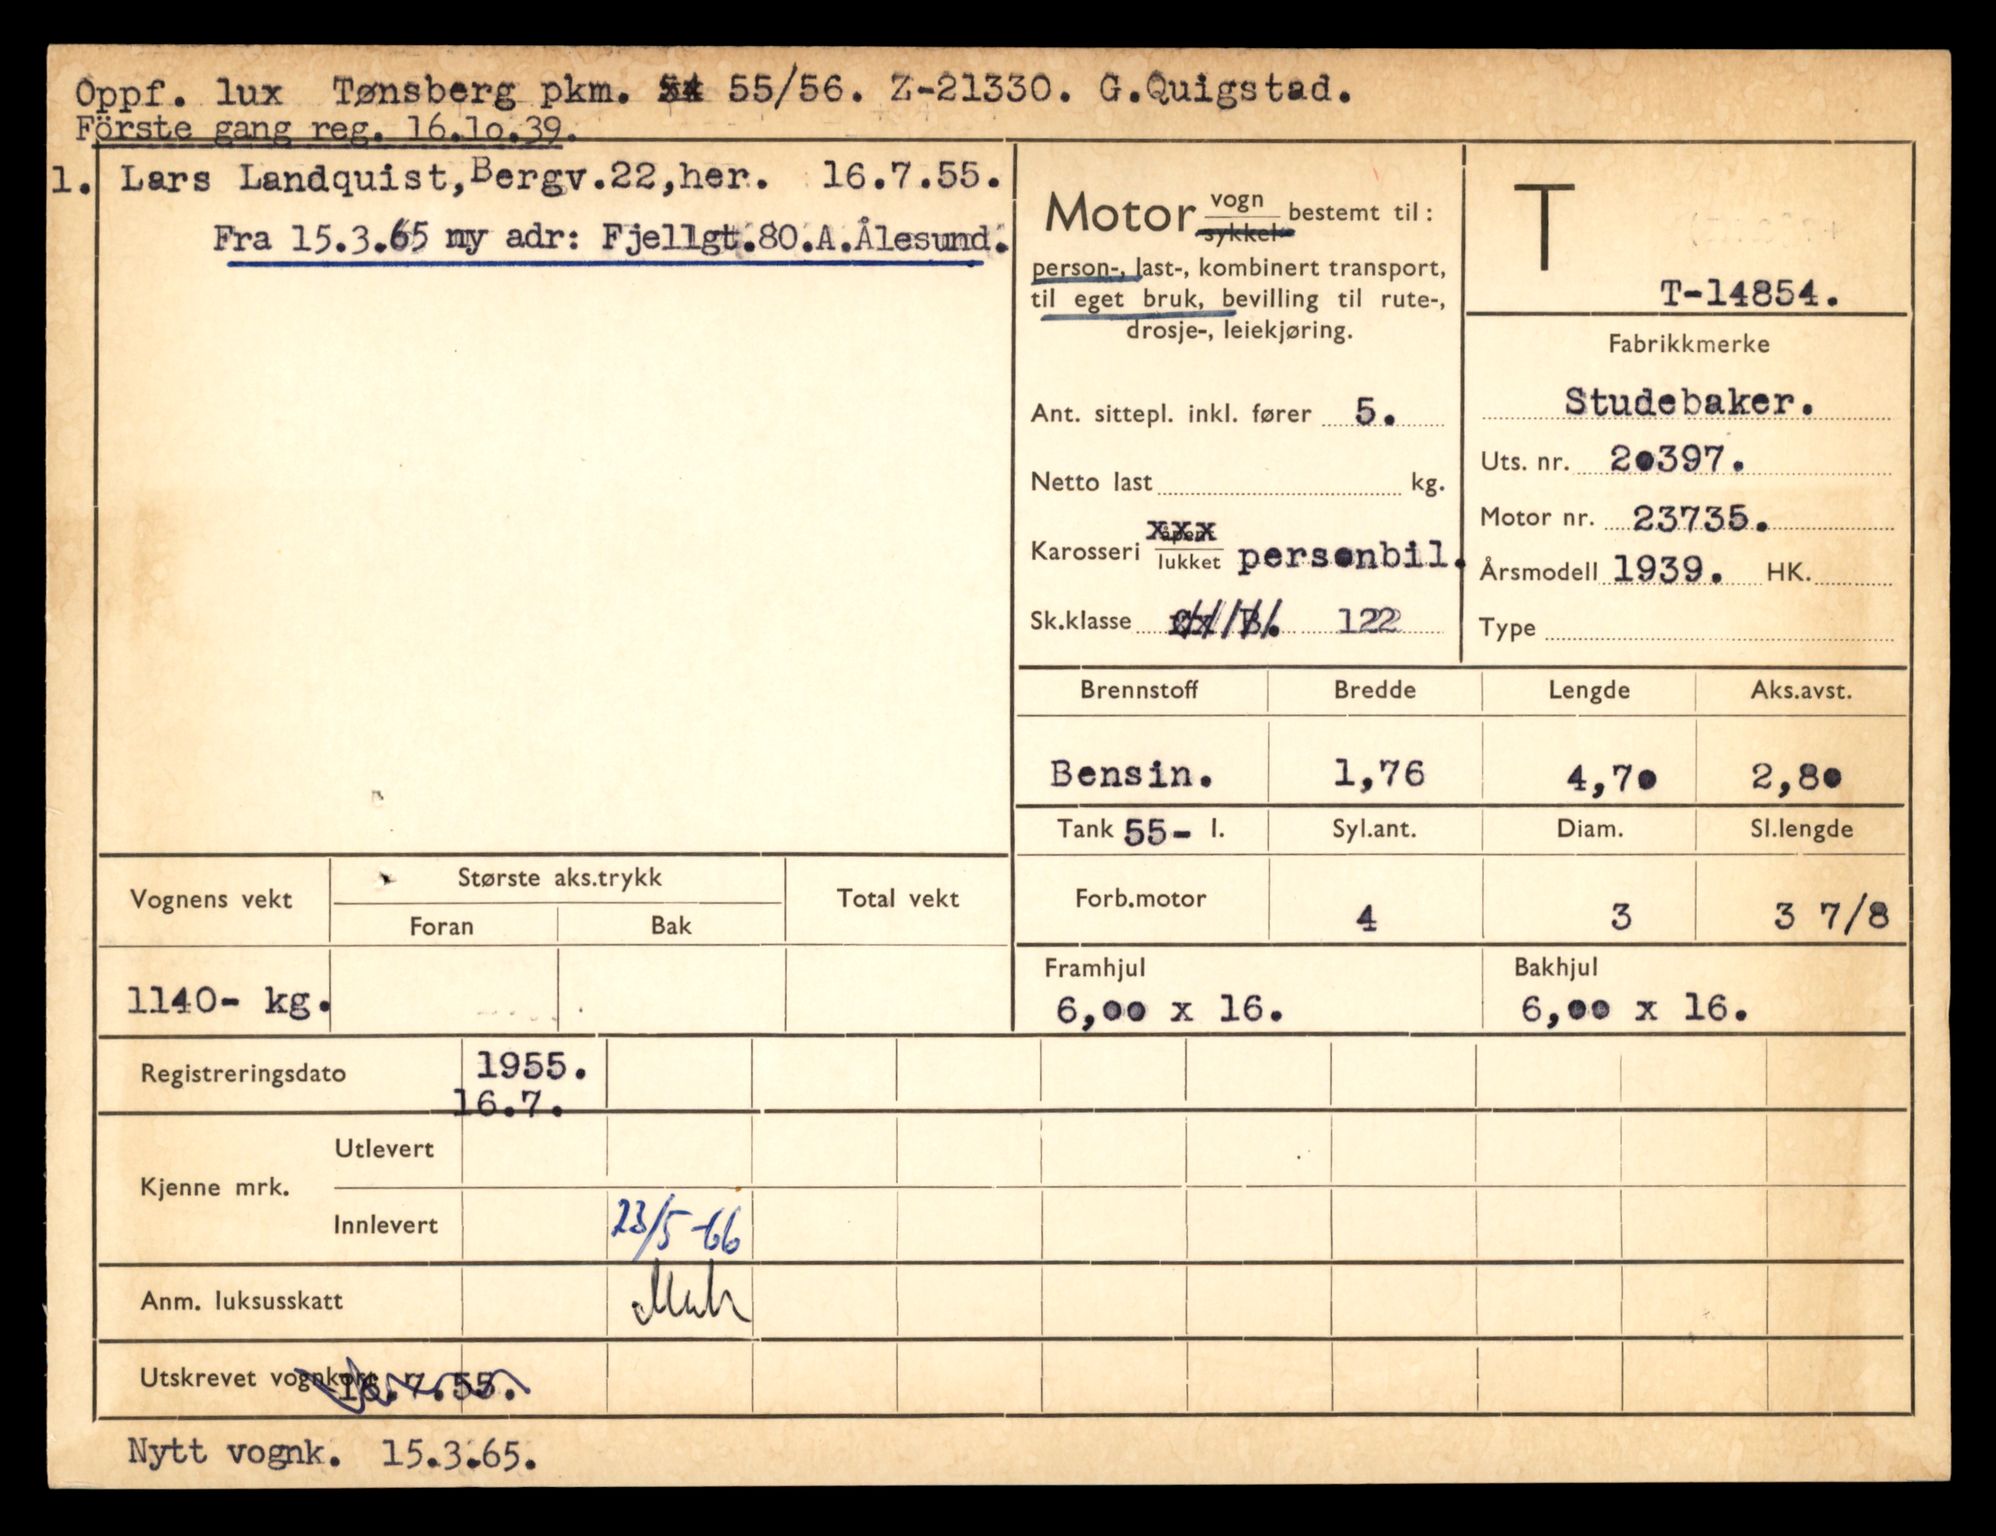 Oppf. lux Tønsberg pkm. 55/56. Z-21330. G.Quigstad.
Förste gang reg. 16.1o.39.
1. Lars Landquist, Bergv.22, her. 16.7.55.
Fra 15.3.65 ny adr: Fjellgt.80.A.Ålesund.
Motor vogn
sykkel
bestemt til:
person-, last-, kombinert transport,
til eget bruk, bevilling til rute-,
drosje-, leiekjøring.
Ant. sittepl. inkl. fører 5.
Netto last kg.
Karosseri åpen
lukket personbil.
Sk.klasse 122
T
T-14854.
Fabrikkmerke
Studebaker.
Uts. nr. 20397.
Motor nr. 23735.
Årsmodell 1939. HK.
Type
Brennstoff Bredde Lengde Aks.avst.
Bensin. 1,76 4,70 2,80
Tank 55- l. Syl.ant. Diam. Sl.lengde
Forb.motor 4 3 3 7/8
Framhjul Bakhjul
6,00 x 16. 6,00 x 16.
Vognens vekt Største aks.trykk Total vekt
Foran Bak
1140- kg.
Registreringsdato 1955.
16.7.
Kjenne mrk. Utlevert
Innlevert 23/5-66
Anm. luksusskatt
Utskrevet vognkort 16.7.55.
Nytt vognk. 15.3.65.